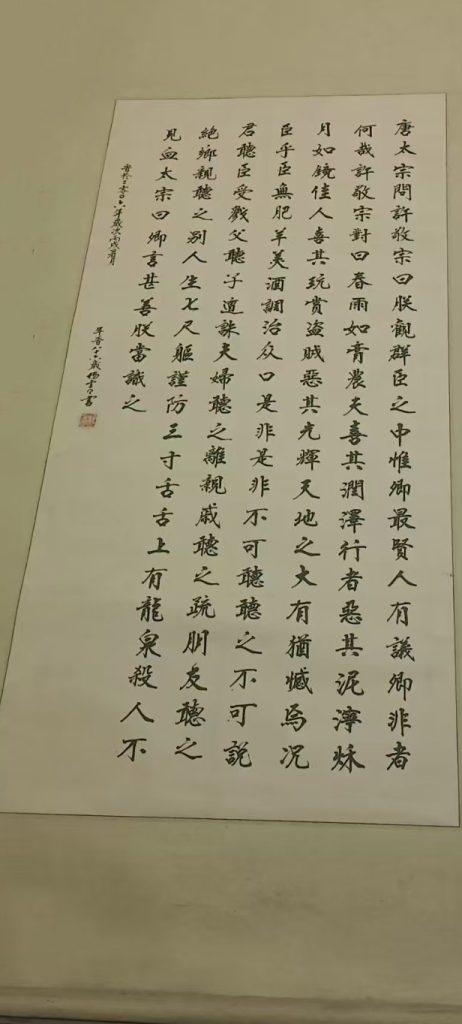 唐太宗問許敬宗曰朕觀群臣之中惟卿最賢人有議卿非者
何哉許敬宗對曰春雨如膏農夫喜其潤澤行者惡其泥濘秌
月如鏡佳人喜其玩賞盜賊惡其光輝天地之大有猶憾焉况
臣乎臣無肥羊美酒調治众口是非是非不可聽聽之不可説
君聽臣受戮父聽子遭誅夫婦聽之離親戚聽之疏朋友聽之
絶鄉親聽之别人生七尺軀謹防三寸舌舌上有龍泉殺人不
見血太宗曰卿言甚善朕當識之
書於二零零六年歲次丙戌月
年晋八十六歲楊書